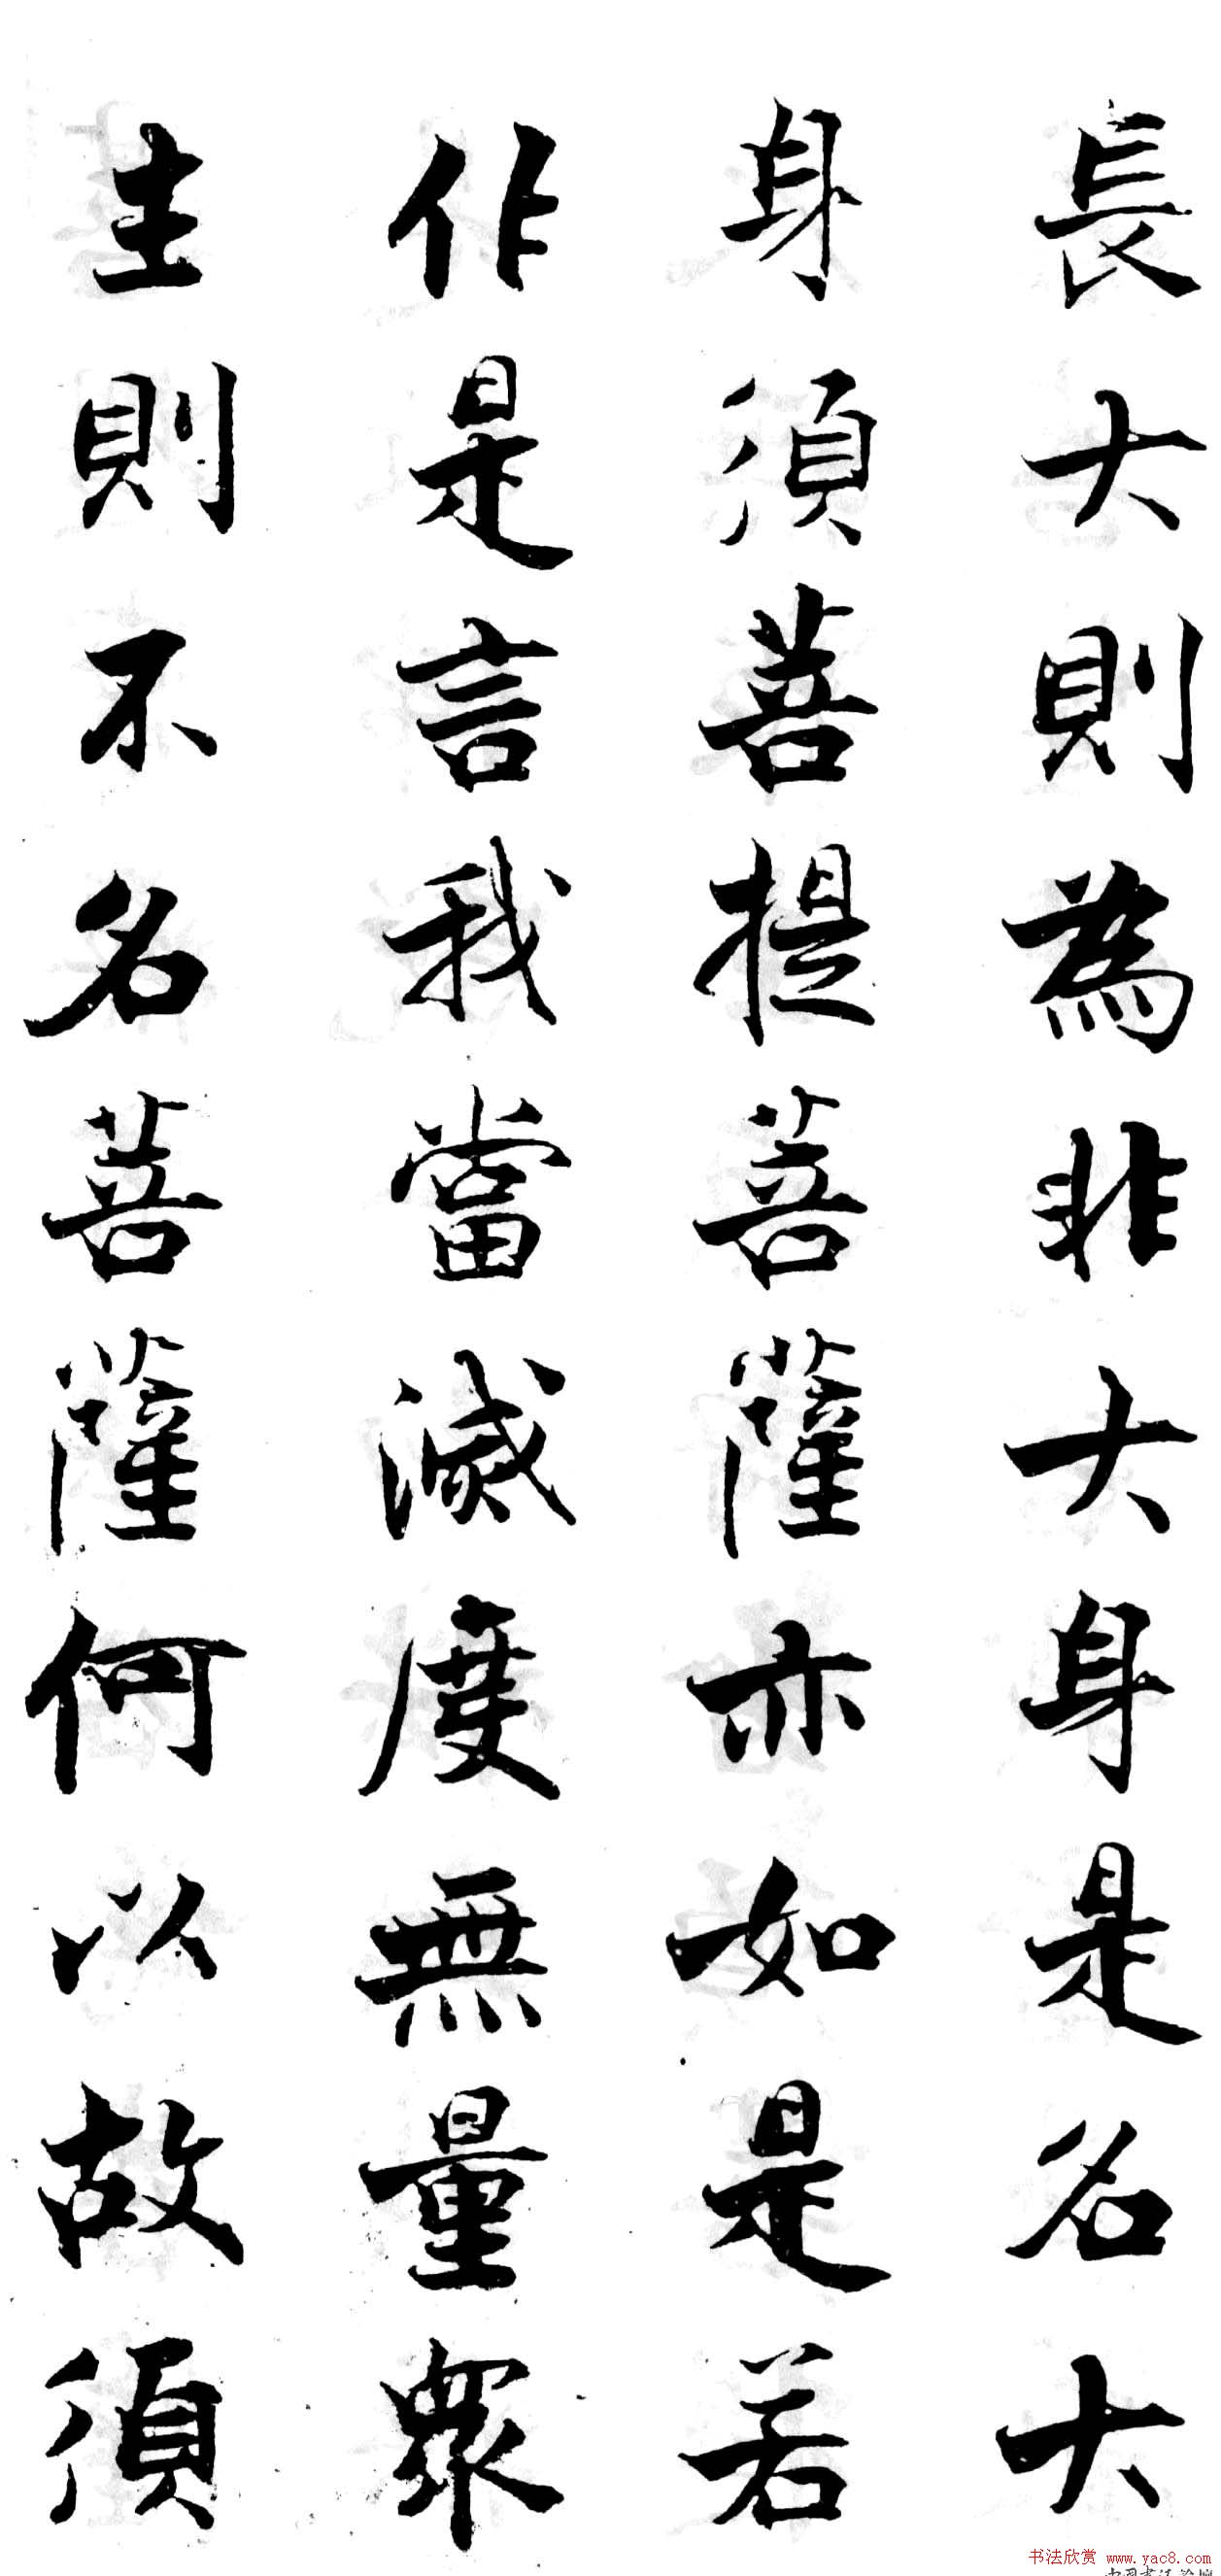 長大則為非大身是名大
身須菩提菩薩亦如是若
作是言我當滅度無量眾
生則不名菩薩何以故須
书法欣赏 www.yac8.com